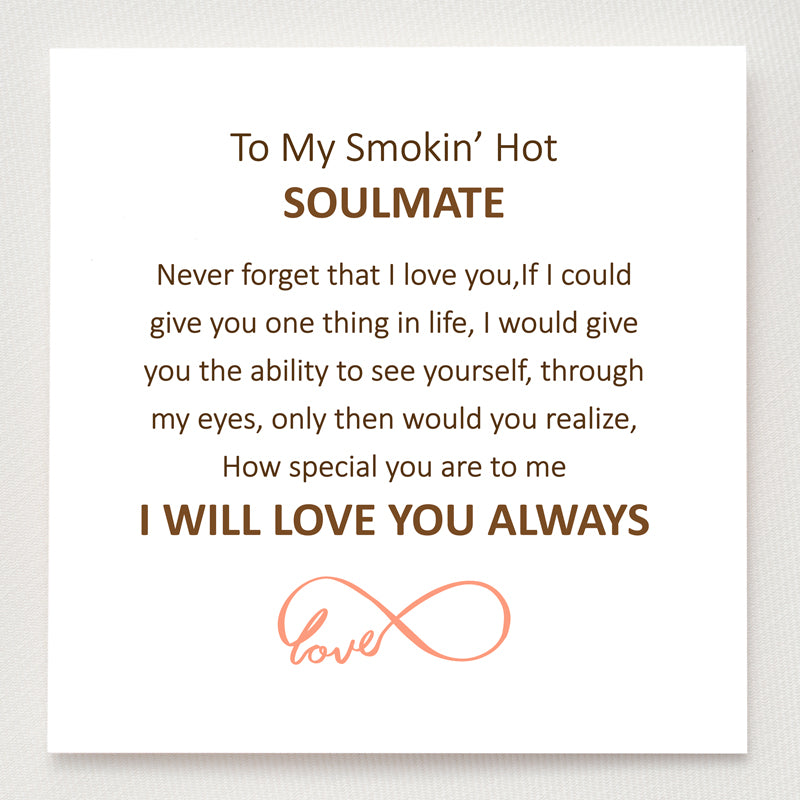 To My Smokin’ Hot
SOULMATE
Never forget that I love you,If I could
give you one thing in life, I would give
you the ability to see yourself, through
my eyes, only then would you realize,
How special you are to me
I WILL LOVE YOU ALWAYS
love